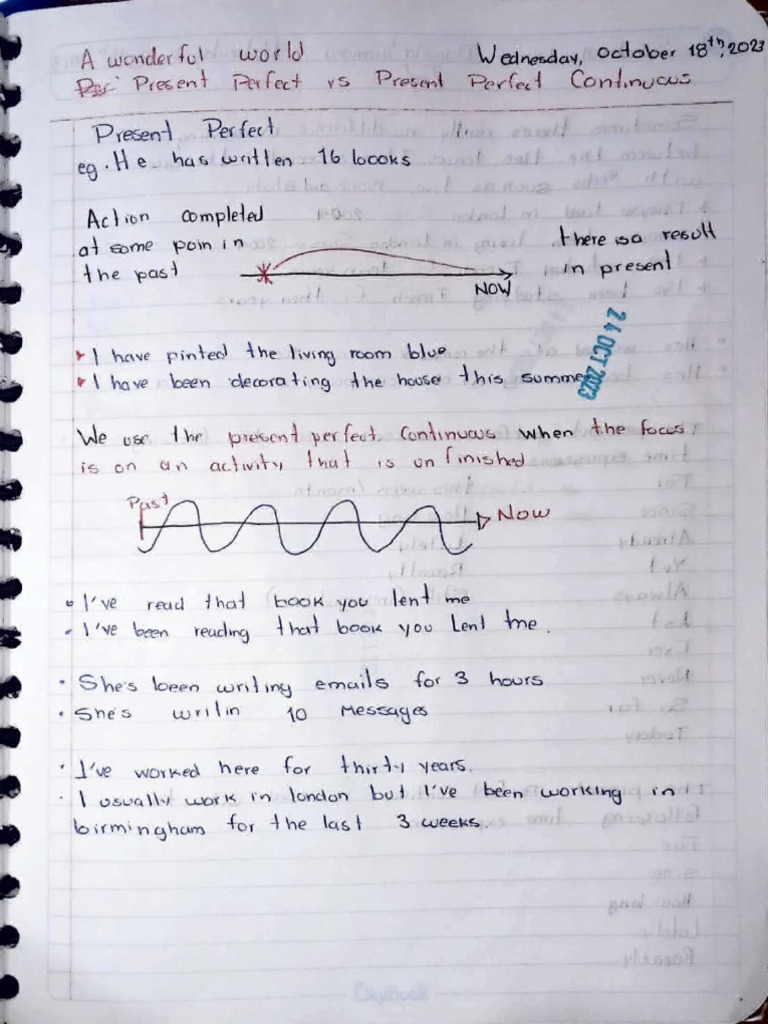 A wonderful world Wednesday, October 18th, 2023
Present Perfect vs Present Perfect Continuous
Present Perfect
eg. He has written 16 books
Action completed
at some poin in
the past
NOW
there is a result
in present
I have pinted the living room blue
I have been decorating the house this summer
24 OCT 2023
We use the present perfect continuous when the focus
is on an activity that is unfinished
Past
Now
I've read that book you lent me
I've been reading that book you lent me.
She's been writing emails for 3 hours
She's writin 10 messages
I've worked here for thirty years.
I usually work in london but I've been working in
birmingham for the last 3 weeks.